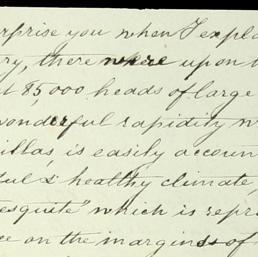 rprise you when I expla
ry, there were upon
t 85,000 heads of large
wonderful rapidity
illas, is easily accoun
ful & healthy climate,
esquite" which is repr
ce on the margins of